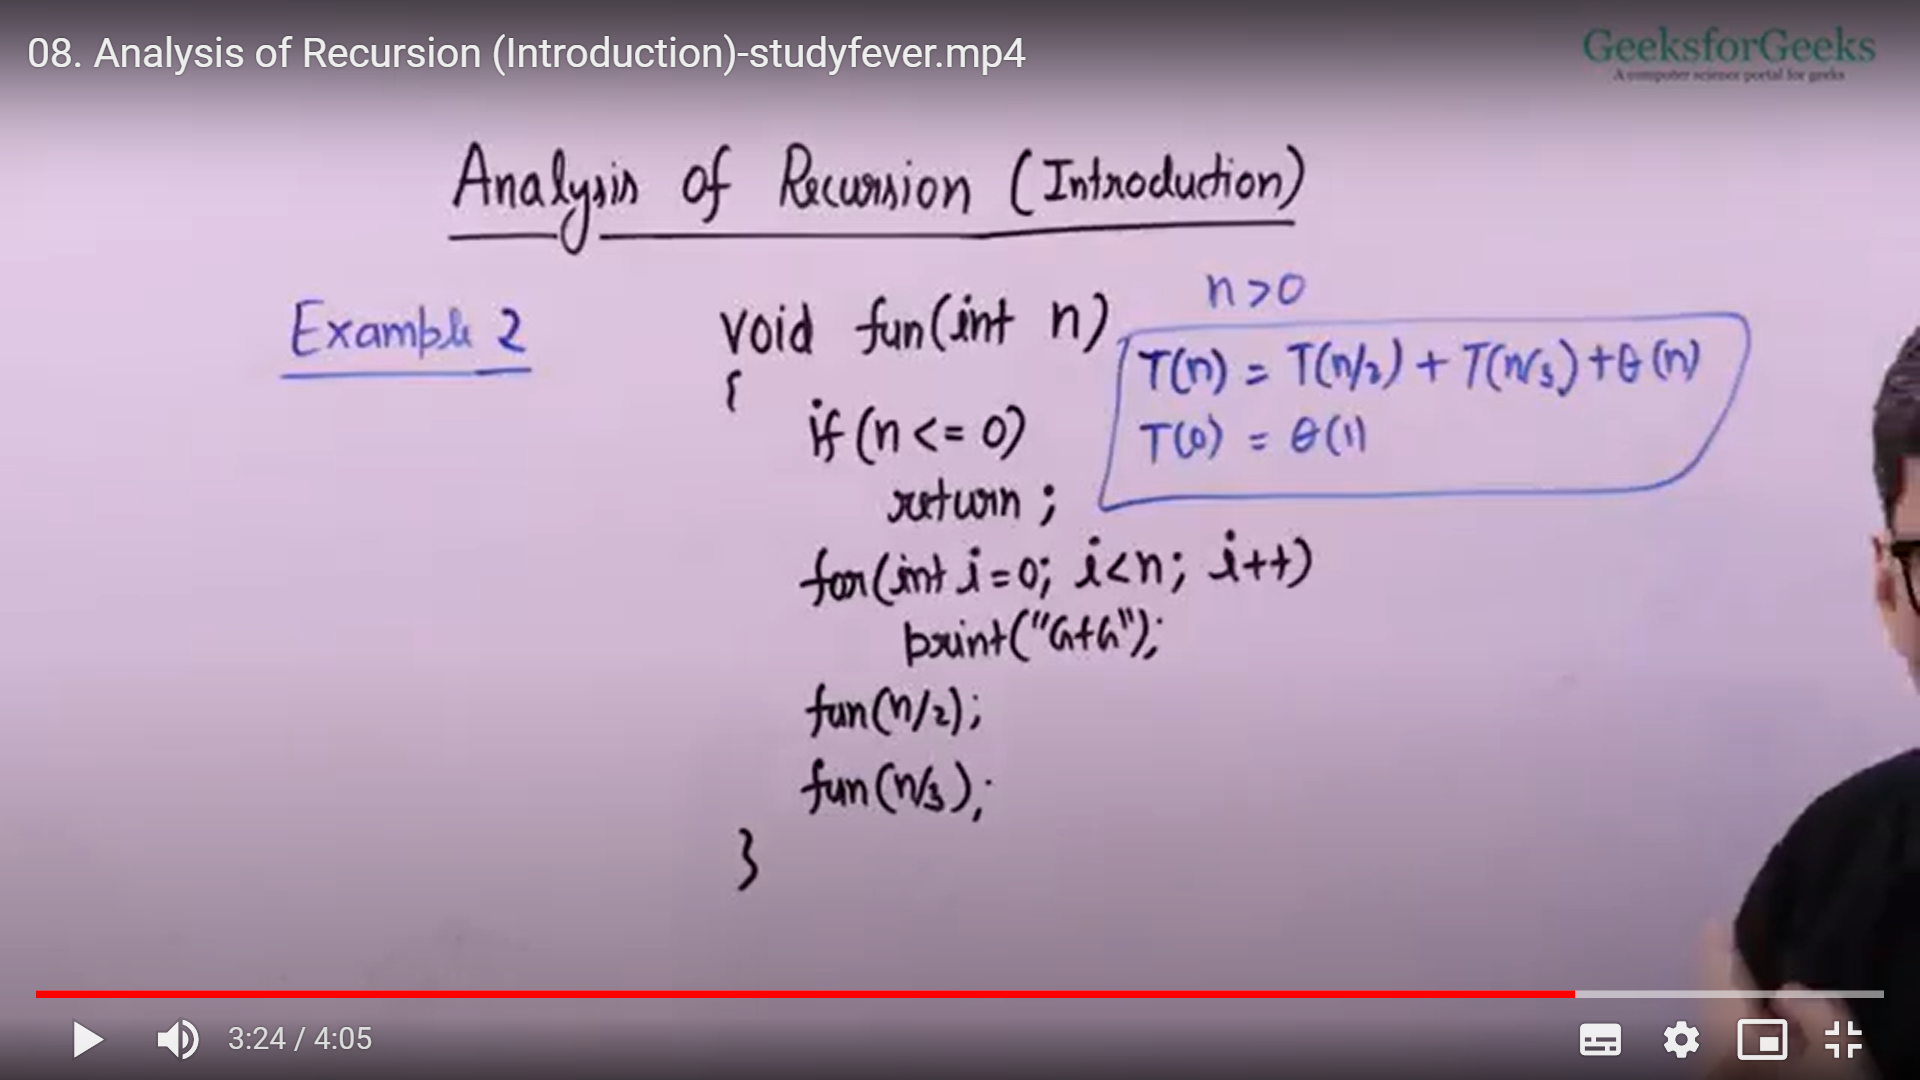 08. Analysis of Recursion (Introduction)-studyfever.mp4
GeeksforGeeks
A computer science portal for geeks
Analysis of Recursion (Introduction)
Example 2
void fun(int n)
n>0
{
T(n) = T(n/2) + T(n/3) + θ(n)
if (n <= 0)
T(0) = θ(1)
return ;
for(int i=0; i<n; i++)
print("GfG");
fun(n/2);
fun(n/3);
}
3:24 / 4:05